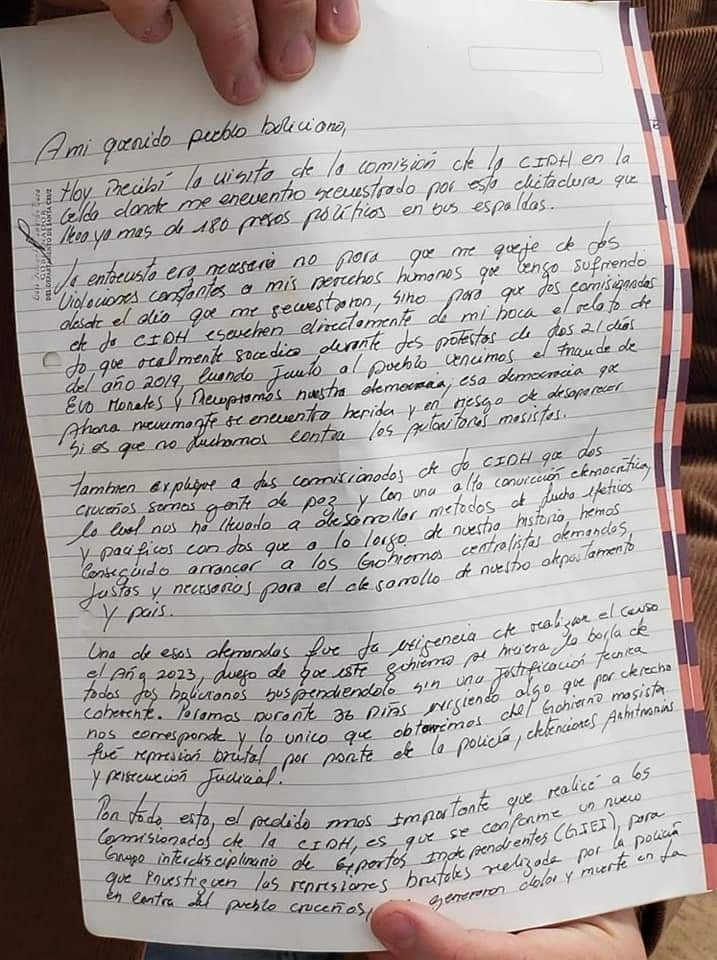 A mi querido pueblo boliviano,
Hoy Recibí la visita de la comisión de la CIDH en la
celda donde me encuentro secuestrado por esta dictadura que
lleva ya mas de 180 presos políticos en sus espaldas.
GOBERNADOR
DEL DEPARTAMENTO DE SANTA CRUZ
La entrevista era necesaria no para que me queje de las
violaciones constantes a mis derechos humanos que vengo sufriendo
desde el día que me secuestraron, sino para que los comisionados
de la CIDH escuchen directamente de mi boca el relato de
lo que realmente sucedio durante las protestas de los 21 días
del año 2019, cuando junto al pueblo vencimos el fraude de
Evo Morales y Recuperamos nuestra democracia, esa democracia que
Ahora nuevamente se encuentra herida y en riesgo de desaparecer
si es que no luchamos contra los autoritarios masistas.
Tambien explique a los comisionados de la CIDH que los
cruceños somos gente de paz y con una alta convicción democrática,
lo cual nos ha llevado a desarrollar metodos de lucha efectivos
y pacificos con los que a lo largo de nuestra historia hemos
conseguido arrancar a los Gobiernos centralistas demandas
justas y necesarias para el desarrollo de nuestro departamento
y pais.
Una de esas demandas fue la exigencia de realizar el censo
el Año 2023, luego de que este gobierno se hiciera la burla de
todos los bolivianos suspendiendolo sin una justificación tecnica
coherente. Paramos Durante 36 Días exigiendo algo que por derecho
nos corresponde y lo unico que obtuvimos del Gobierno masista
fué represión brutal por parte de la policía, detenciones Arbitrarias
y persecución Judicial!
Por todo esto, el pedido mas importante que realicé a los
Comisionados de la CIDH, es que se conforme un nuevo
Grupo interdisciplinario de Expertos Independientes (GIEI), para
que investiguen las represiones brutales realizada por la policía
en contra del pueblo cruceños, generaron dolor y muerte en la